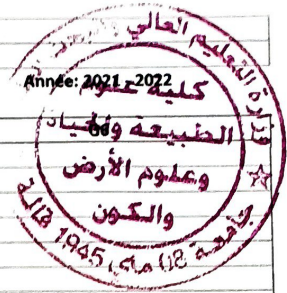 وزارة التعليم العالي
Année: 2021 - 2022
كلية علوم
الطبيعة والحياة
وعلوم الأرض
والكون
جامعة 8 ماي 1945 قالمة